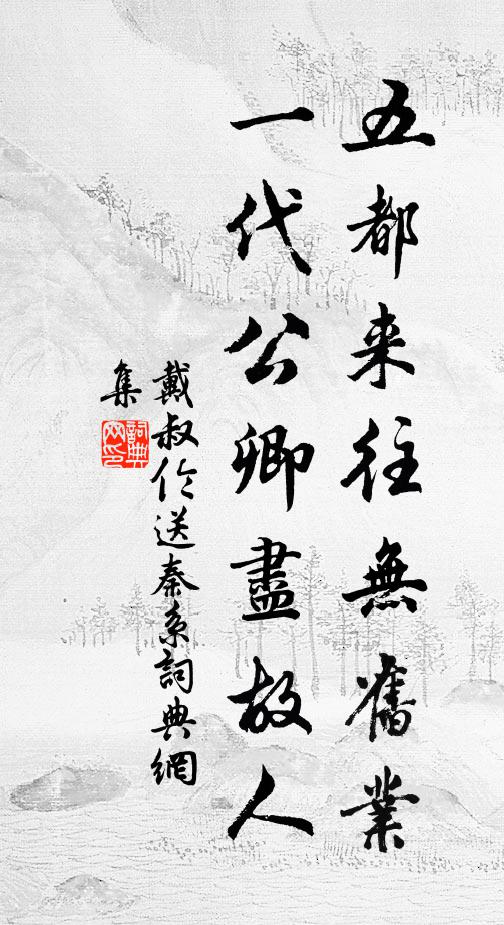 五都来往無舊業
一代公卿盡故人
戴叔伦送秦系詞典網
集
詞典
网印